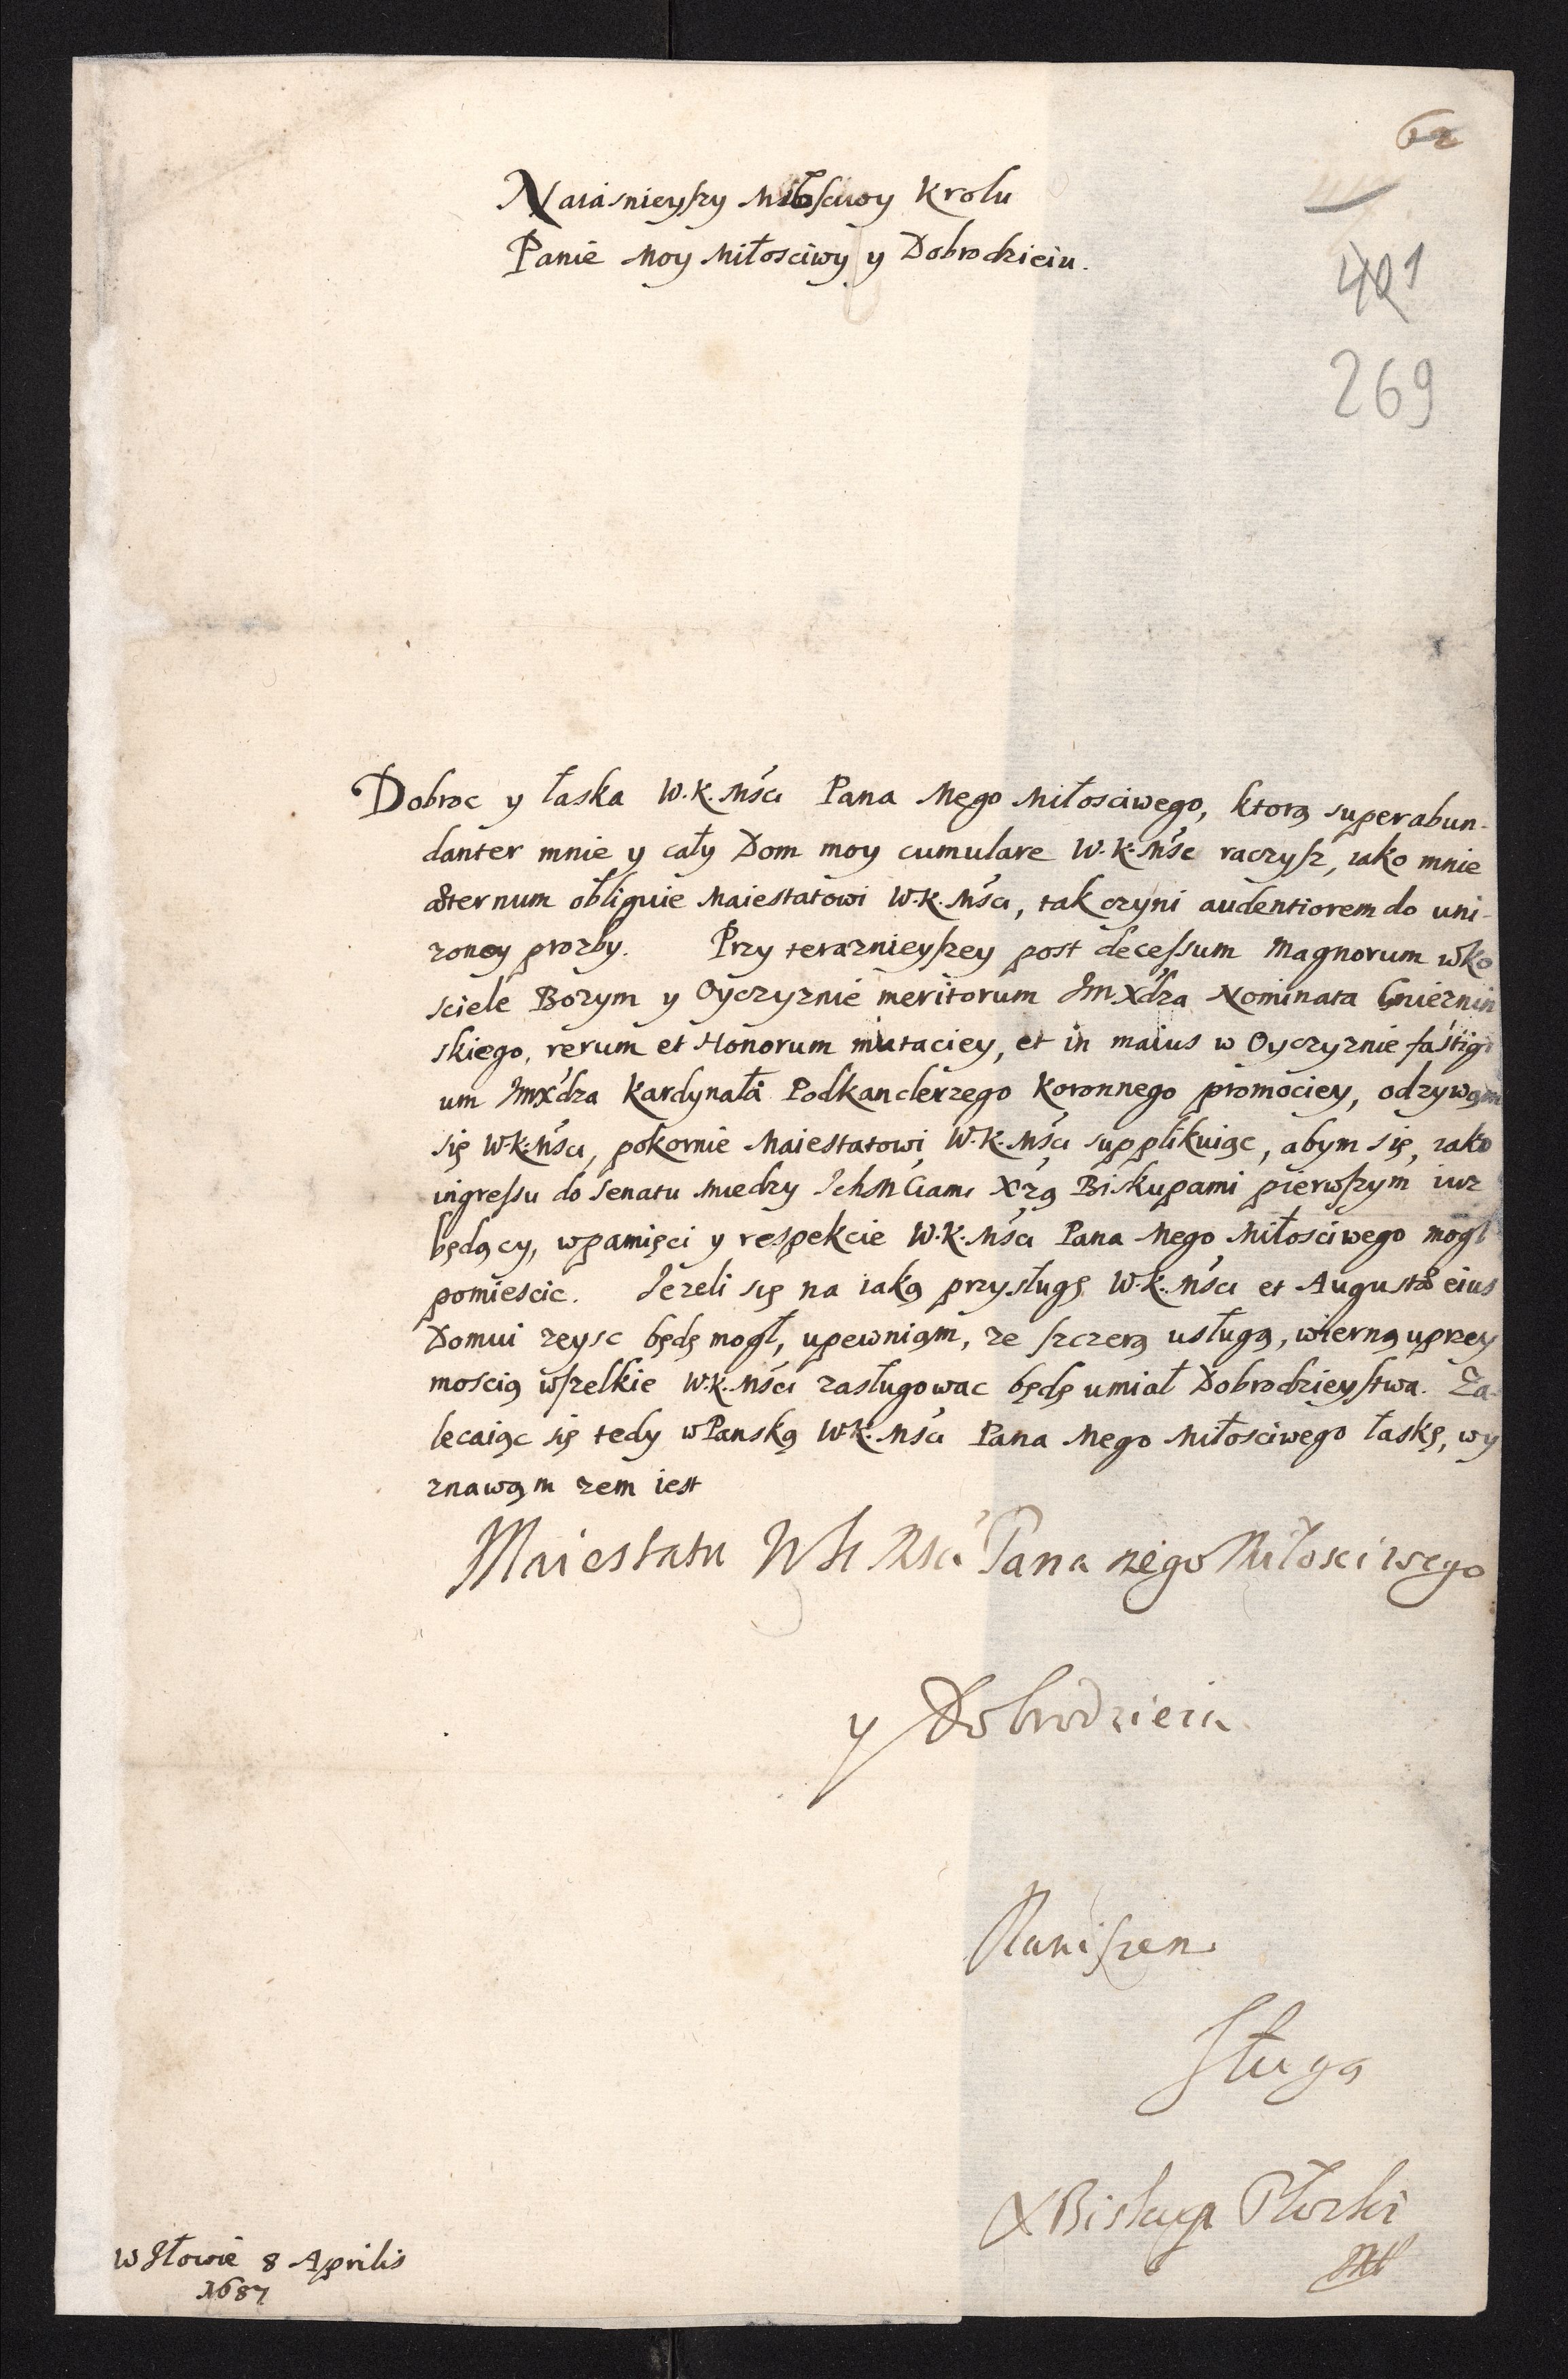 62
401
269
Naiasnieyszy Miłosciwy Krolu
Panie Moy Miłosciwy y Dobrodzieiu.
Dobroc y łaska W.K.Mści Pana Mego Miłosciwego, ktorą superabun-
danter mnie y cały Dom moy cumulare W.K.Mśc raczysz, iako mnie
æternum obliguie Maiestatowi W.K.Mści, tak czyni audentiorem do uni-
zoney prozby. Przy teraznieyszey post decessum Magnorum w ko
sciele Bozym y Oyczyznie meritorum Jmxdza Nominata Gnieznin
skiego, rerum et Honorum mutaciey, et in maius w Oyczyznie fastigi
um Jmxdza Kardynała Podkanclerzego Koronnego promociey, odzywam
się W.K.Mści, pokornie Maiestatowi W.K.Mści supplikuiąc, abym się, iako
ingressu do Senatu miedzy Ichmciami Xzą Biskupami pierwszym iuz
będący, w pamięci y respekcie W.K.Mści Pana Mego Miłosciwego mogł
pomiescic. Jezeli się na iaką przysługę W.K.Mści et Augustæ eius
Domui zeysc będę mogł, upewniam, ze szczerą usługą, wierną uprzey
moscią wszelkie W.K.Mści zasługowac będę umiał Dobrodzieystwa. Za-
lecaiąc się tedy w Panską W.K.Mści Pana Mego Miłosciwego łaskę, wy
znawam zem iest
Maiestatu WK Mści Pana mego Miłosciwego
y Dobrodzieia
Naniszem
Sługą
XBiskup Płocki
8 Aprilis
1687